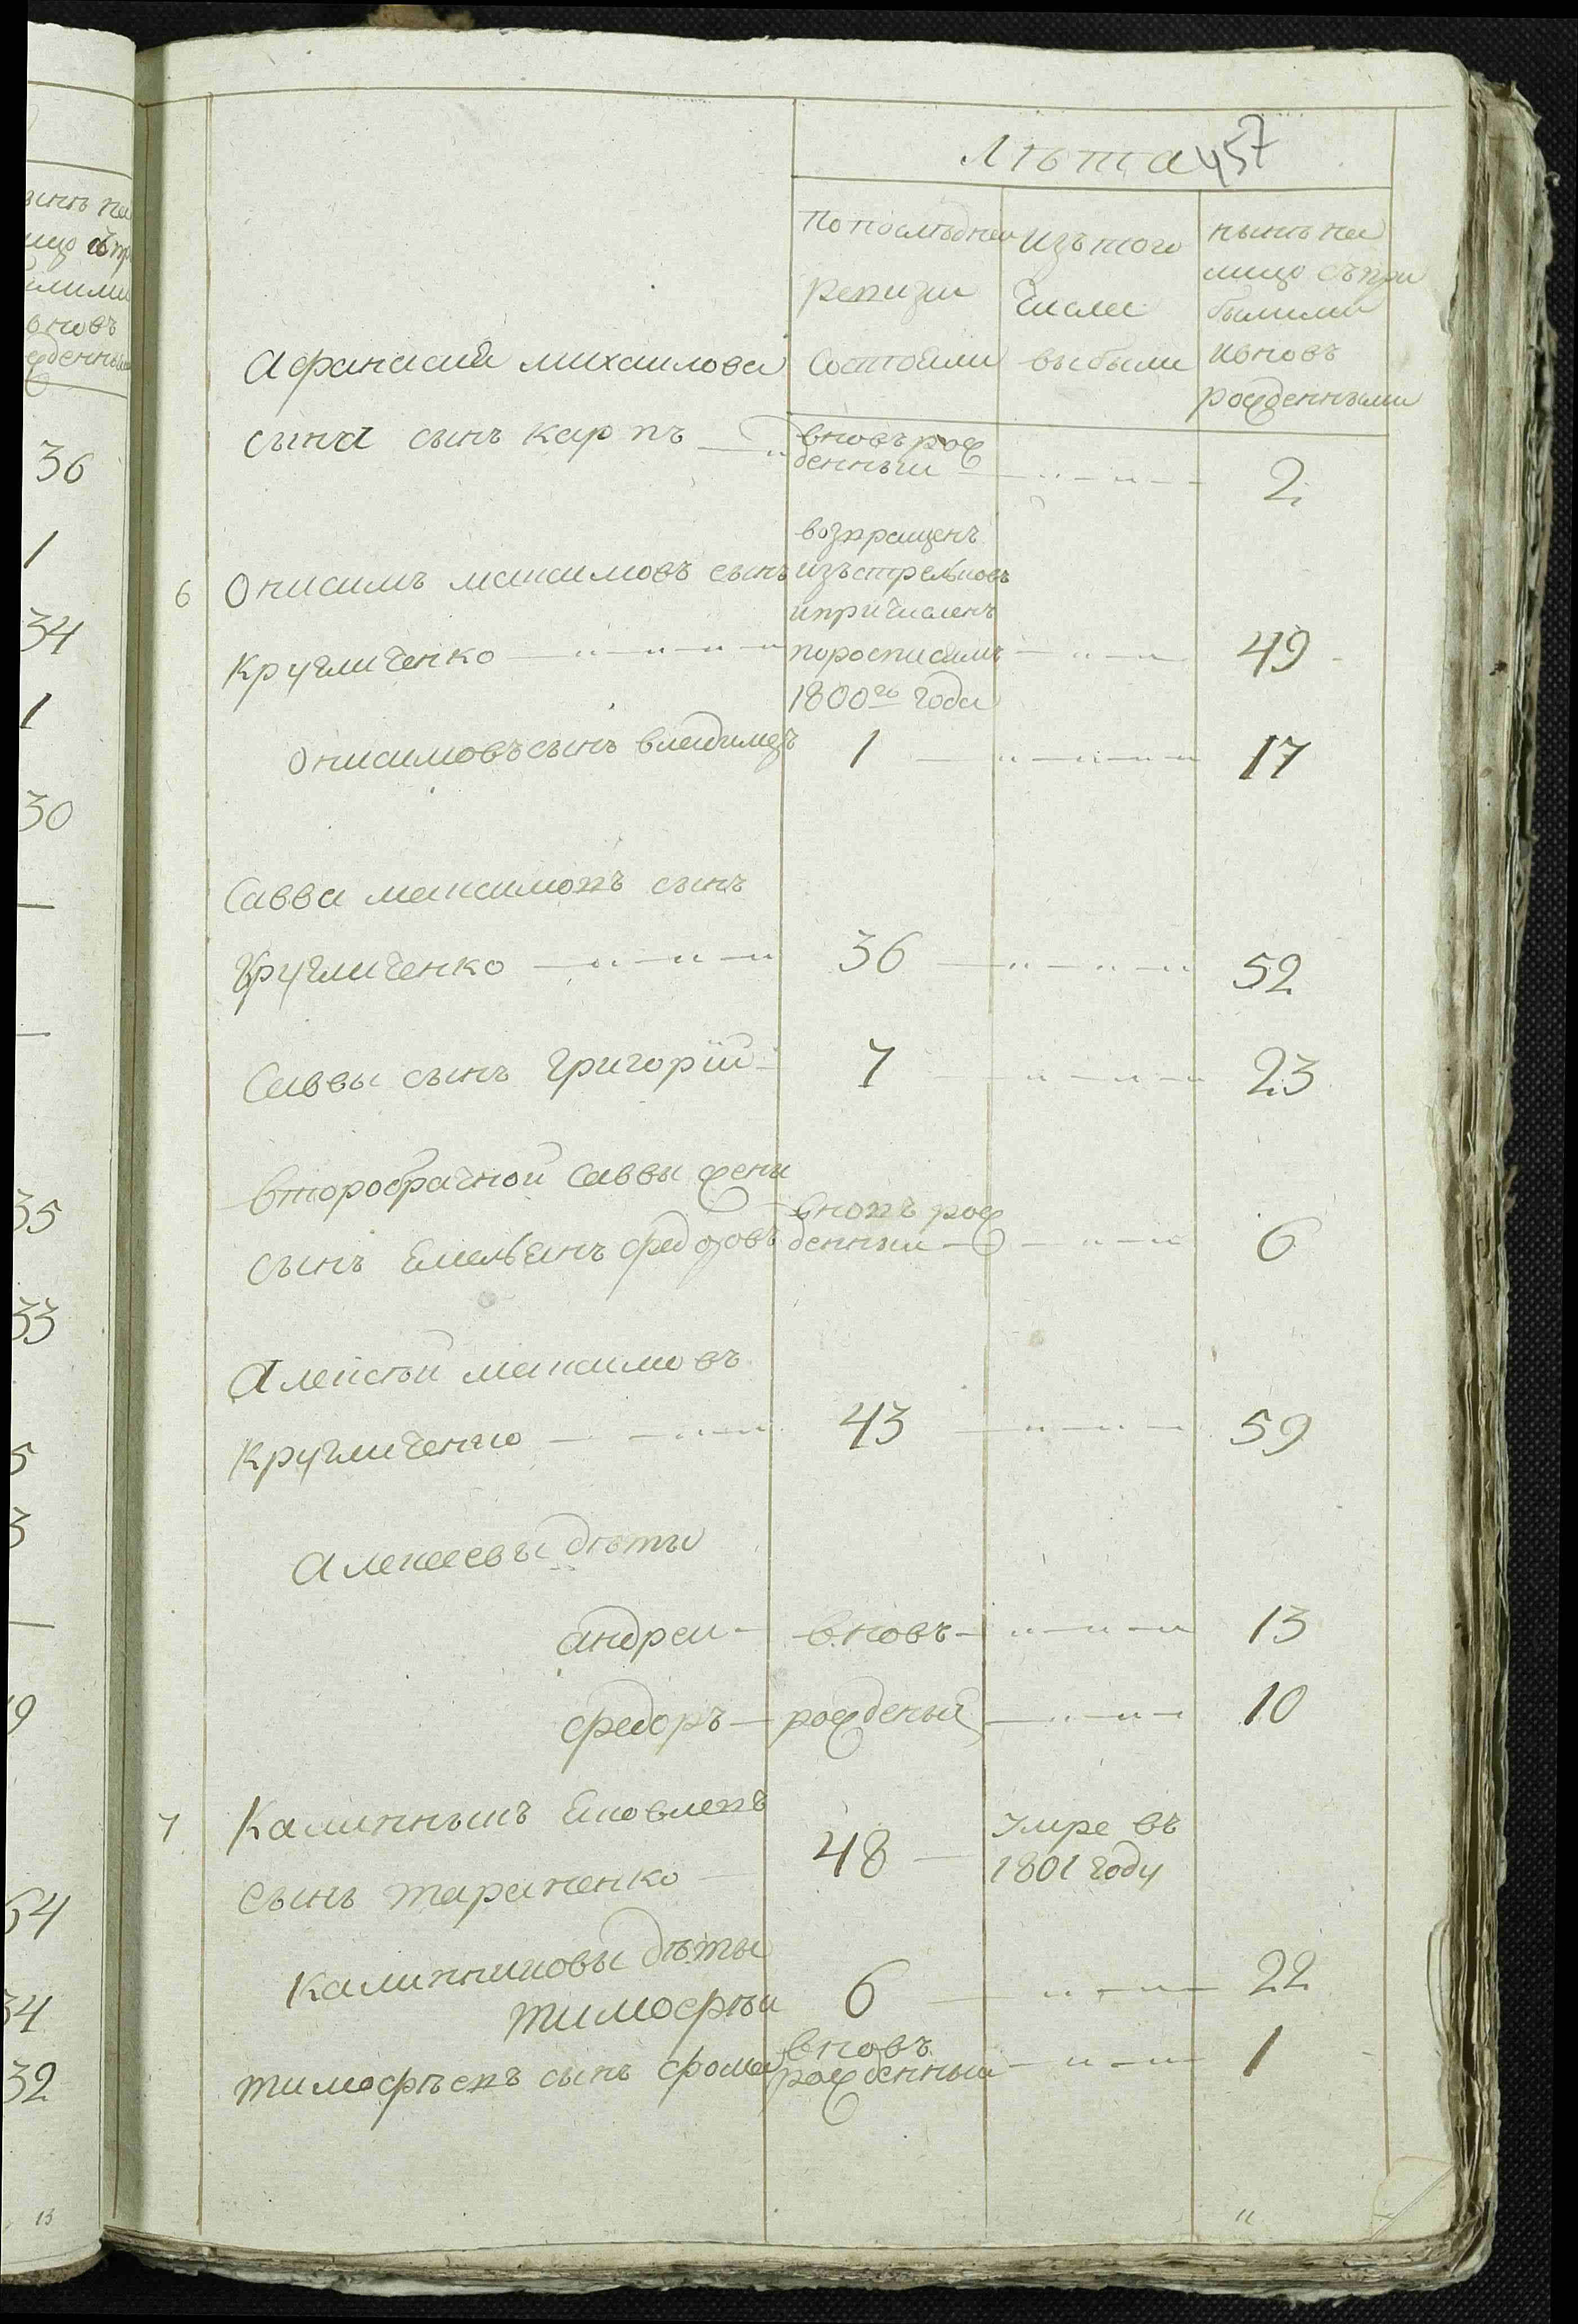 Лѣта 457
По последней
ревизии
состояли
изъ того
числа
выбыли
нынѣ на
лицо съ при
былими
и вновь
рожденными
Афанасия михаилова
сына сынъ карпъ вновь рож
денныи 2
6 Онисимъ максимовъ сынъ
кругличенко
возвращенъ
изъ стрелковъ
и причисленъ
по росписямъ
1800го года
49
Онисимовъ сынъ владимеръ 1 17
Савва максимовъ сынъ
кругличенко 36 52
Саввы сынъ григорїй 7 23
второбрачной Саввы жены
сынъ Емельянъ федоровъ вновь рож
денныи 6
Алексѣй максимовъ
кругличенко 43 59
Алексеевы дѣти
андреи вновь 13
федоръ рожденыи 10
7 Калинникъ Яковлевъ
сынъ тараненко 48 Умре въ
1801 году
Калинниковы дѣты
тимофѣи 6 22
тимофѣевъ сынъ фома вновь
рожденныи 1
36
1
34
1
30
35
33
5
3
9
54
34
32
13
11